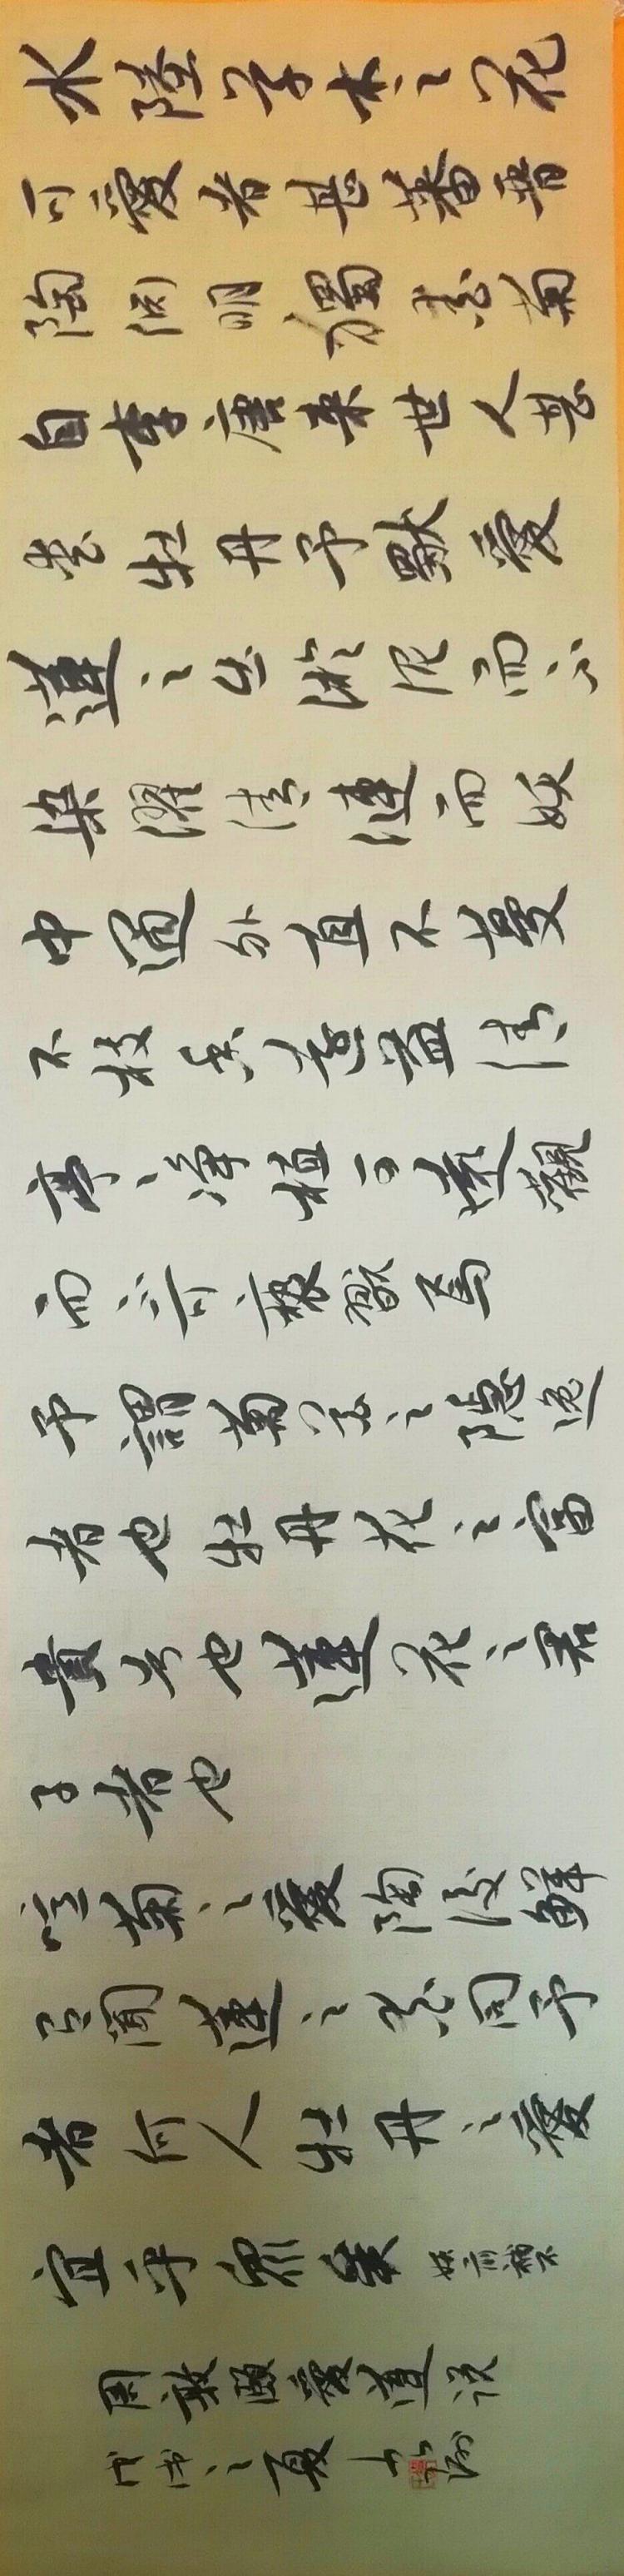 水陸草木之花
可愛者甚蕃晋
陶渊明獨愛菊
自李唐来世人甚
愛牡丹予獨愛
蓮之出淤泥而不
染濯清漣而妖
中通外直不蔓
不枝香遠益清
亭亭净植可遠觀
而不可褻翫焉
予謂菊花之隱逸
者也牡丹花之富
貴者也蓮花之君
子者也
噫菊之愛陶後鮮
有聞蓮之愛同予
者何人牡丹之愛
宜乎眾矣 妖前補不
周敦頤愛蓮説
戊戌之夏